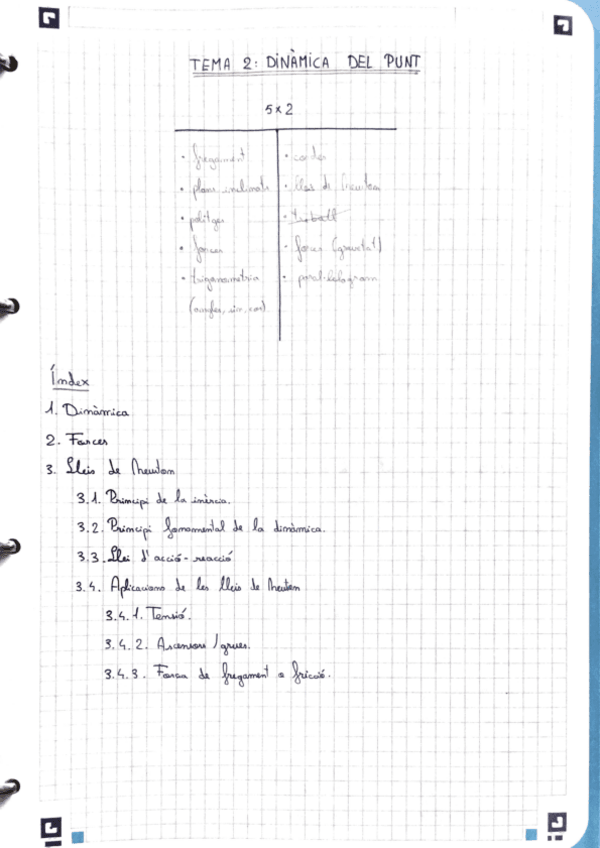 TEMA 2: DINÀMICA DEL PUNT
5x2
• fregament
• plans inclinats
• politges
• forces
• trigonometria
(angles, sin, cos)
• cordes
• lleis de Newton
• treball
• forces (gravetat)
• paral·lelogram
Índex
1. Dinàmica
2. Forces
3. Lleis de Newton
3.1. Principi de la inèrcia.
3.2. Principi fonamental de la dinàmica.
3.3. Llei d'acció-reacció
3.4. Aplicacions de les lleis de Newton
3.4.1. Tensió.
3.4.2. Ascensors / grues.
3.4.3. Força de fregament o fricció.